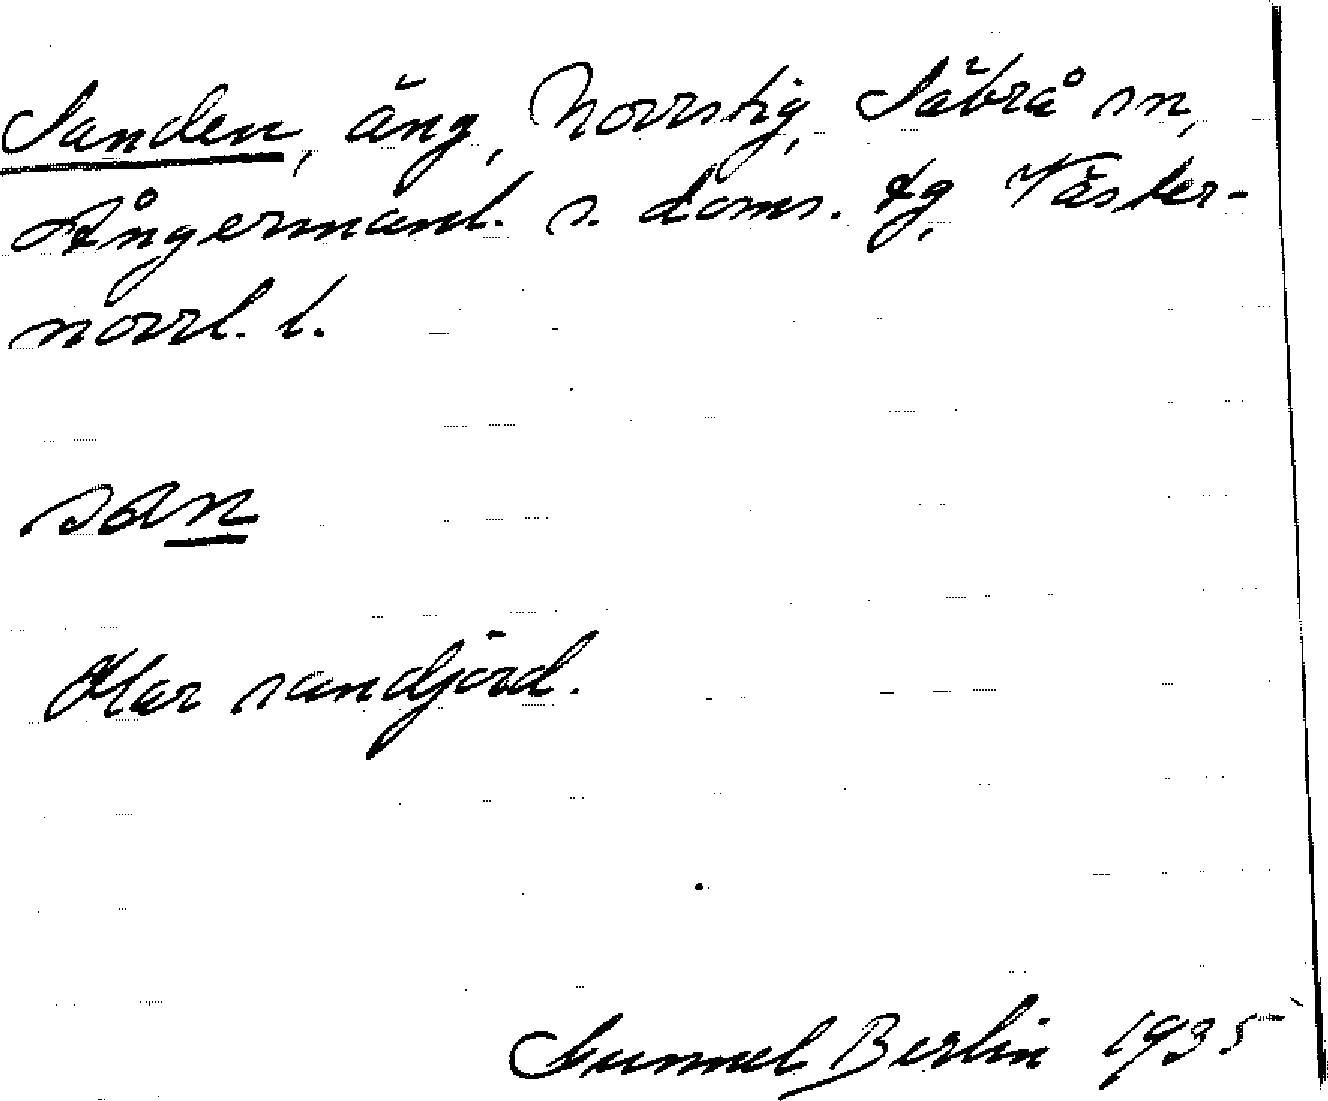 Sanden, äng, Norrstig, Säbrå sn,
Ångermanl. s. doms. tg, Väster-
norrl. l.
san
Har sandjord.
Gunnel Berlin 1935